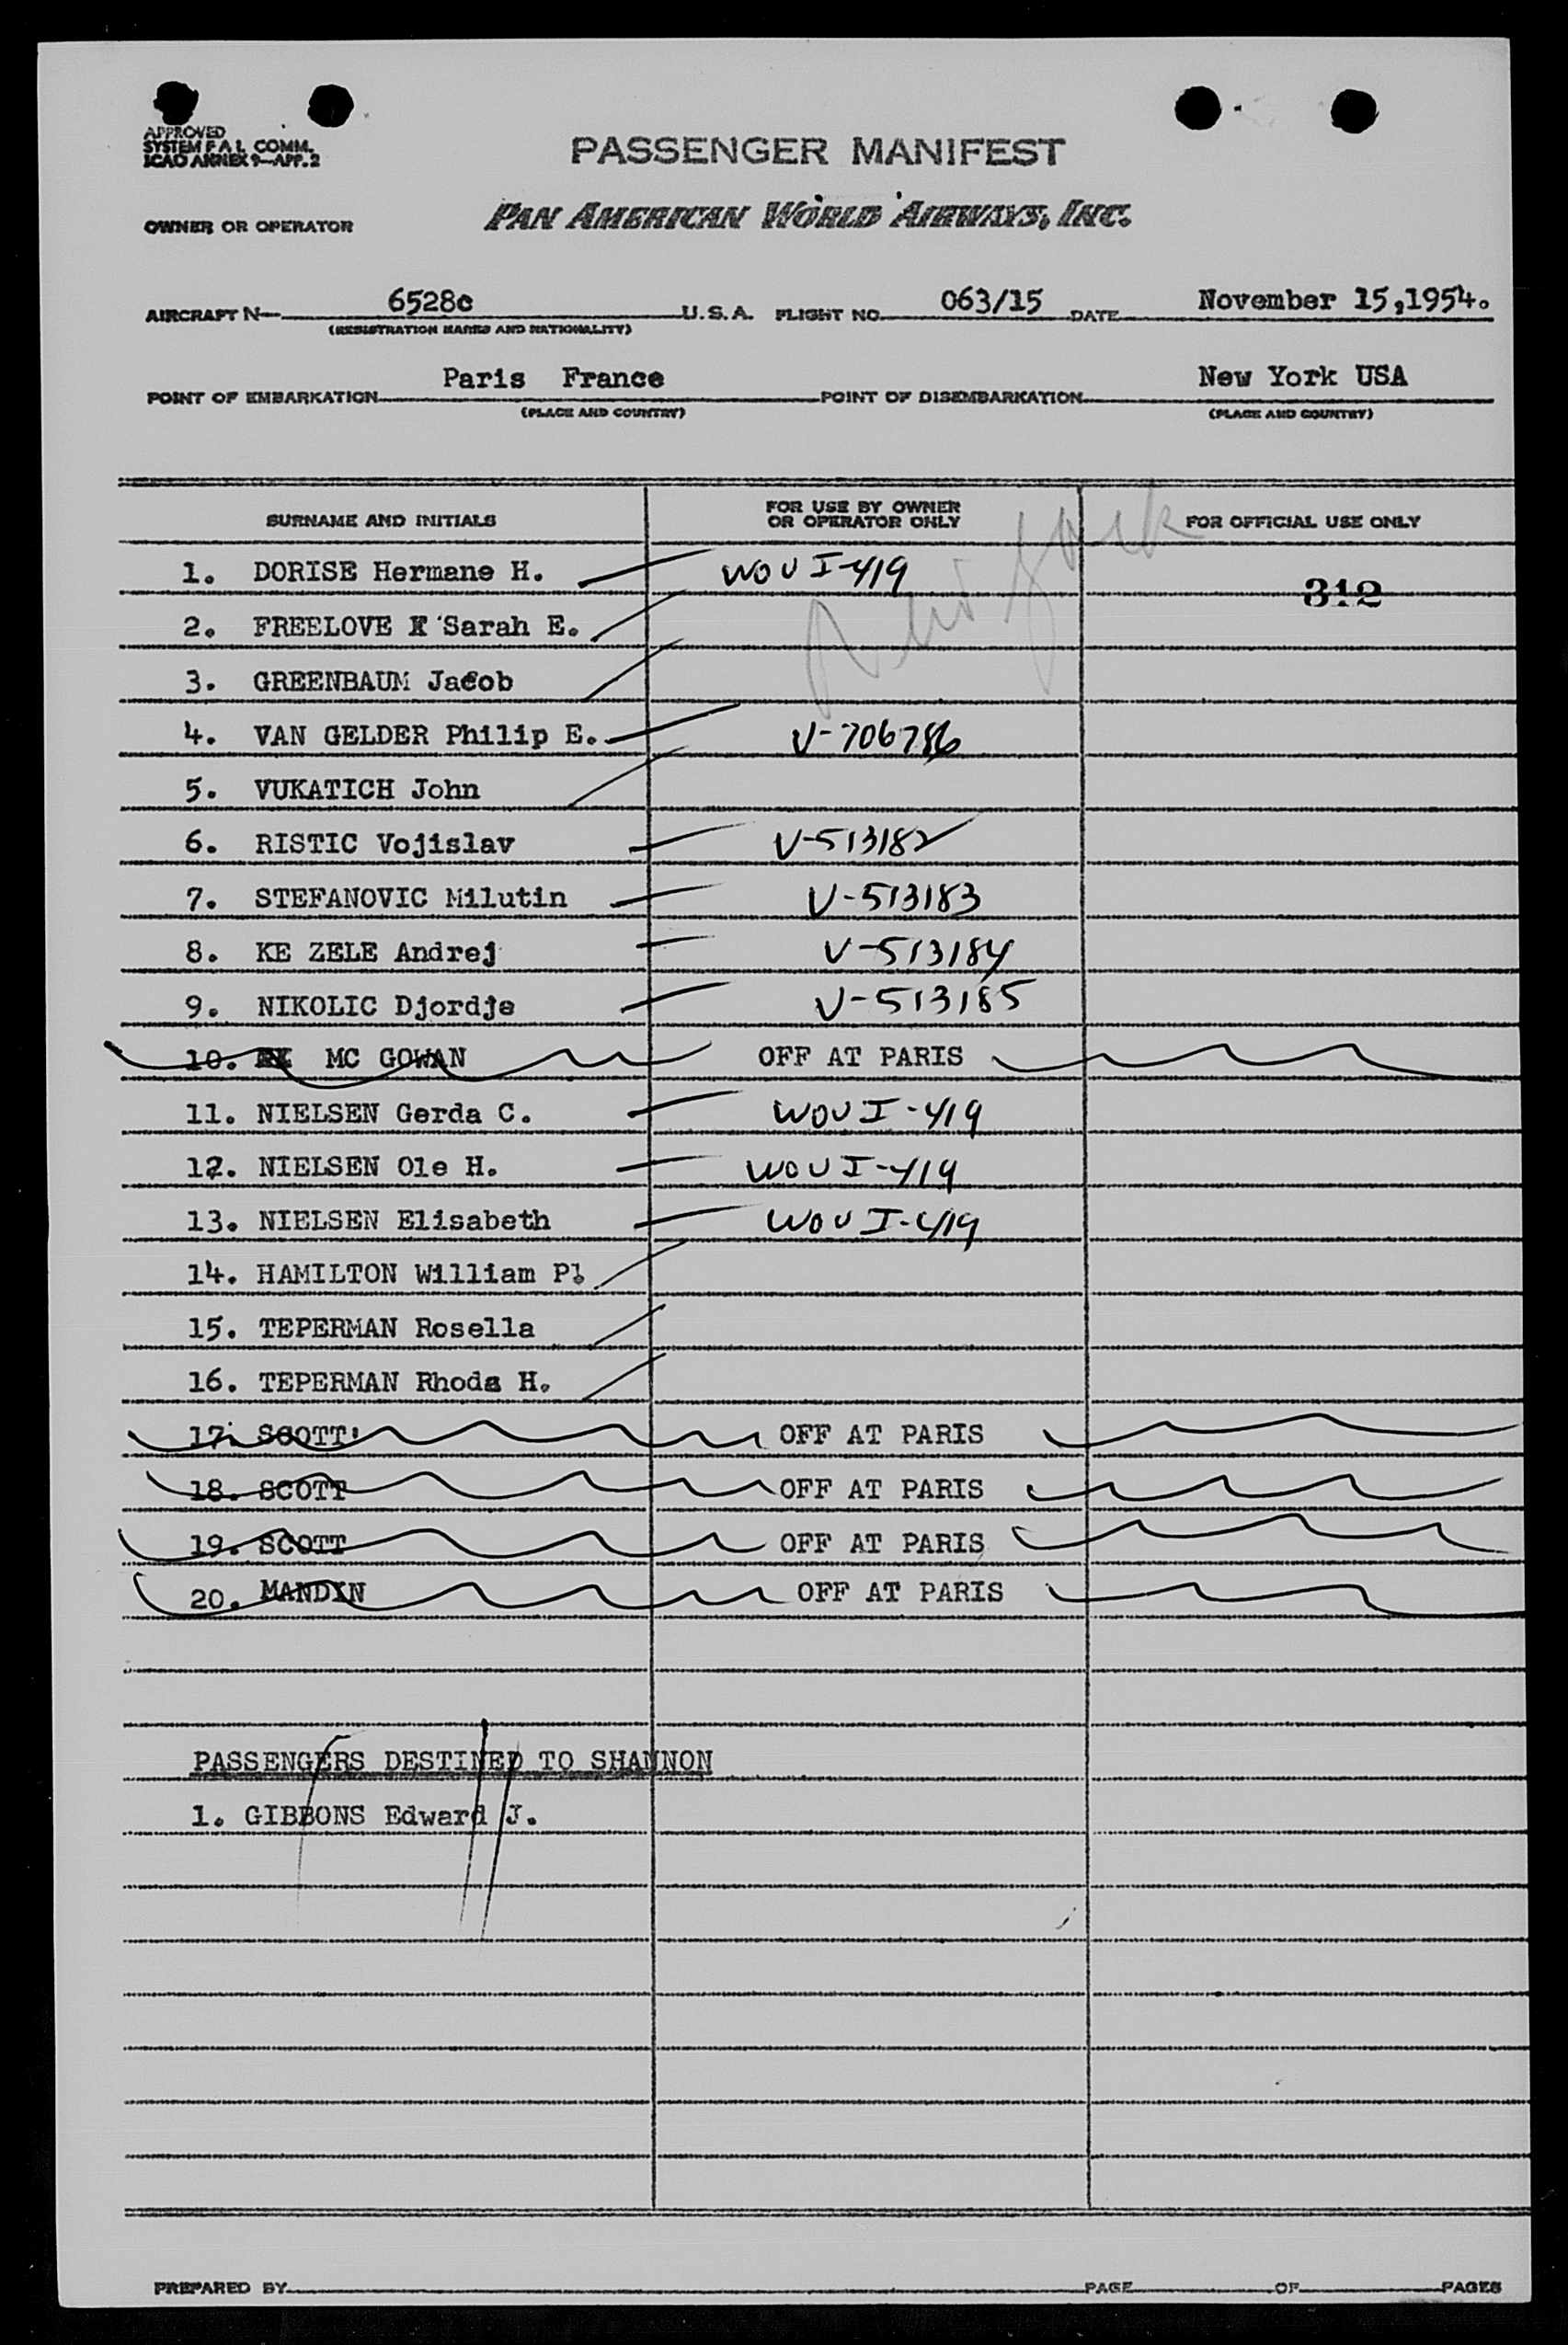 APPROVED
SYSTEM F A L COMM.
ICAO ANNEX 9—APP. 2
PASSENGER MANIFEST
OWNER OR OPERATOR PAN AMERICAN WORLD AIRWAYS, INC.
AIRCRAFT N— 6528c U.S.A. FLIGHT NO. 063/15 DATE November 15,1954.
(REGISTRATION MARKS AND NATIONALITY)
POINT OF EMBARKATION Paris France POINT OF DISEMBARKATION New York USA
(PLACE AND COUNTRY) (PLACE AND COUNTRY)
SURNAME AND INITIALS FOR USE BY OWNER OR OPERATOR ONLY FOR OFFICIAL USE ONLY
New York
1. DORISE Hermane H. WOU I-419 312
2. FREELOVE Sarah E.
3. GREENBAUM Jacob
4. VAN GELDER Philip E. V-706786
5. VUKATICH John
6. RISTIC Vojislav V-513182
7. STEFANOVIC Milutin V-513183
8. KE ZELE Andrej V-513184
9. NIKOLIC Djordje V-513185
10. MC GOWAN OFF AT PARIS
11. NIELSEN Gerda C. WOU I-419
12. NIELSEN Ole H. WOU I-419
13. NIELSEN Elisabeth WOU I-419
14. HAMILTON William P.
15. TEPERMAN Rosella
16. TEPERMAN Rhoda H.
17. SCOTT OFF AT PARIS
18. SCOTT OFF AT PARIS
19. SCOTT OFF AT PARIS
20. MANDIN OFF AT PARIS
PASSENGERS DESTINED TO SHANNON
1. GIBBONS Edward J.
PREPARED BY PAGE OF PAGES